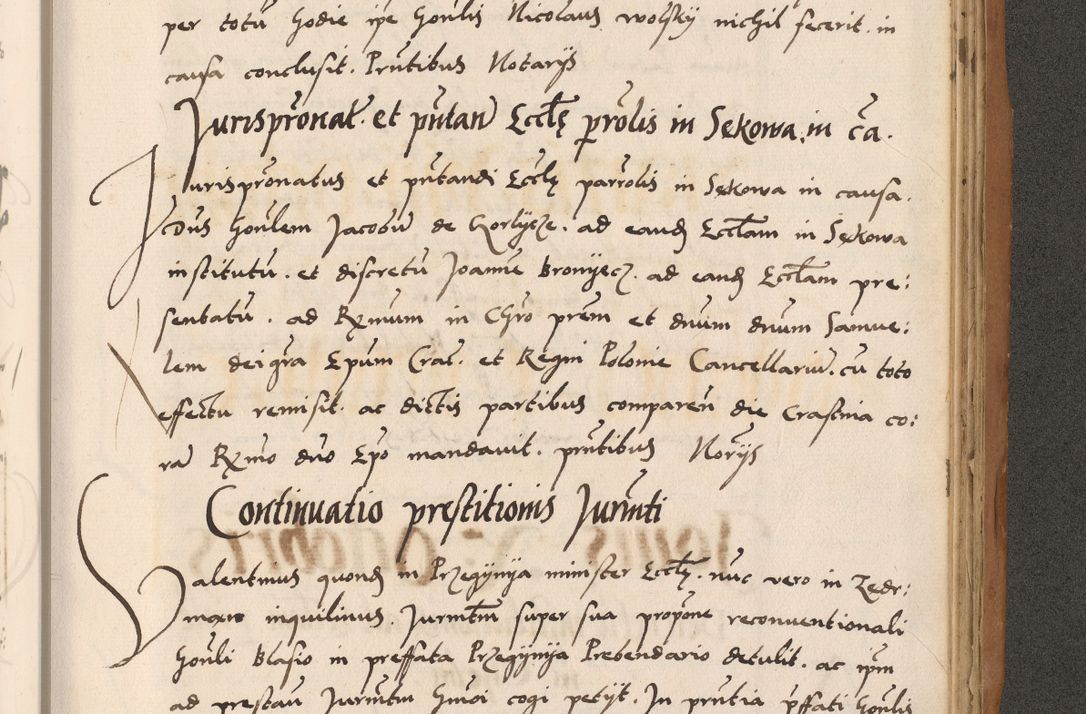 per totū hodie ipe honlis Nicolaus wolskij nichil fecerit. in
causa conclusit. Pntibus Notarijs
Jurispronat. et pntan Eccłę prolis in Sękowa. in ca.
Jurispronatus et pntandi Eccłę parrolis in Sękowa in causa.
Dns honlem Jacobū de Gorlycze. ad eand Eccłam in Sękowa
institutū. et discretū Joannē Bronijecz. ad eand Eccłam pre:
sentatū. ad Rmum in Chro prem et dnum dnum Samue:
lem dei gra Epum Crac. et Regni Polonie Cancellariū. cū toto
effectu remisit. ac dictis partibus comparen die Crastina co:
ra Rmo dno Epo mandavit. pntibus Norijs
Continuatio prestitionis Jurmti
Valentinus quond in Przegijnija minister Eccłę. nuc vero in Zedr:
inquilinus. Jurmtm super sua propone reconventionali
honli Blasio in preffata Przegijnija Prebendario detulit. ac ipm
ad prestan Jurmtm hmoi cogi petijt. In pntia pffati honlis